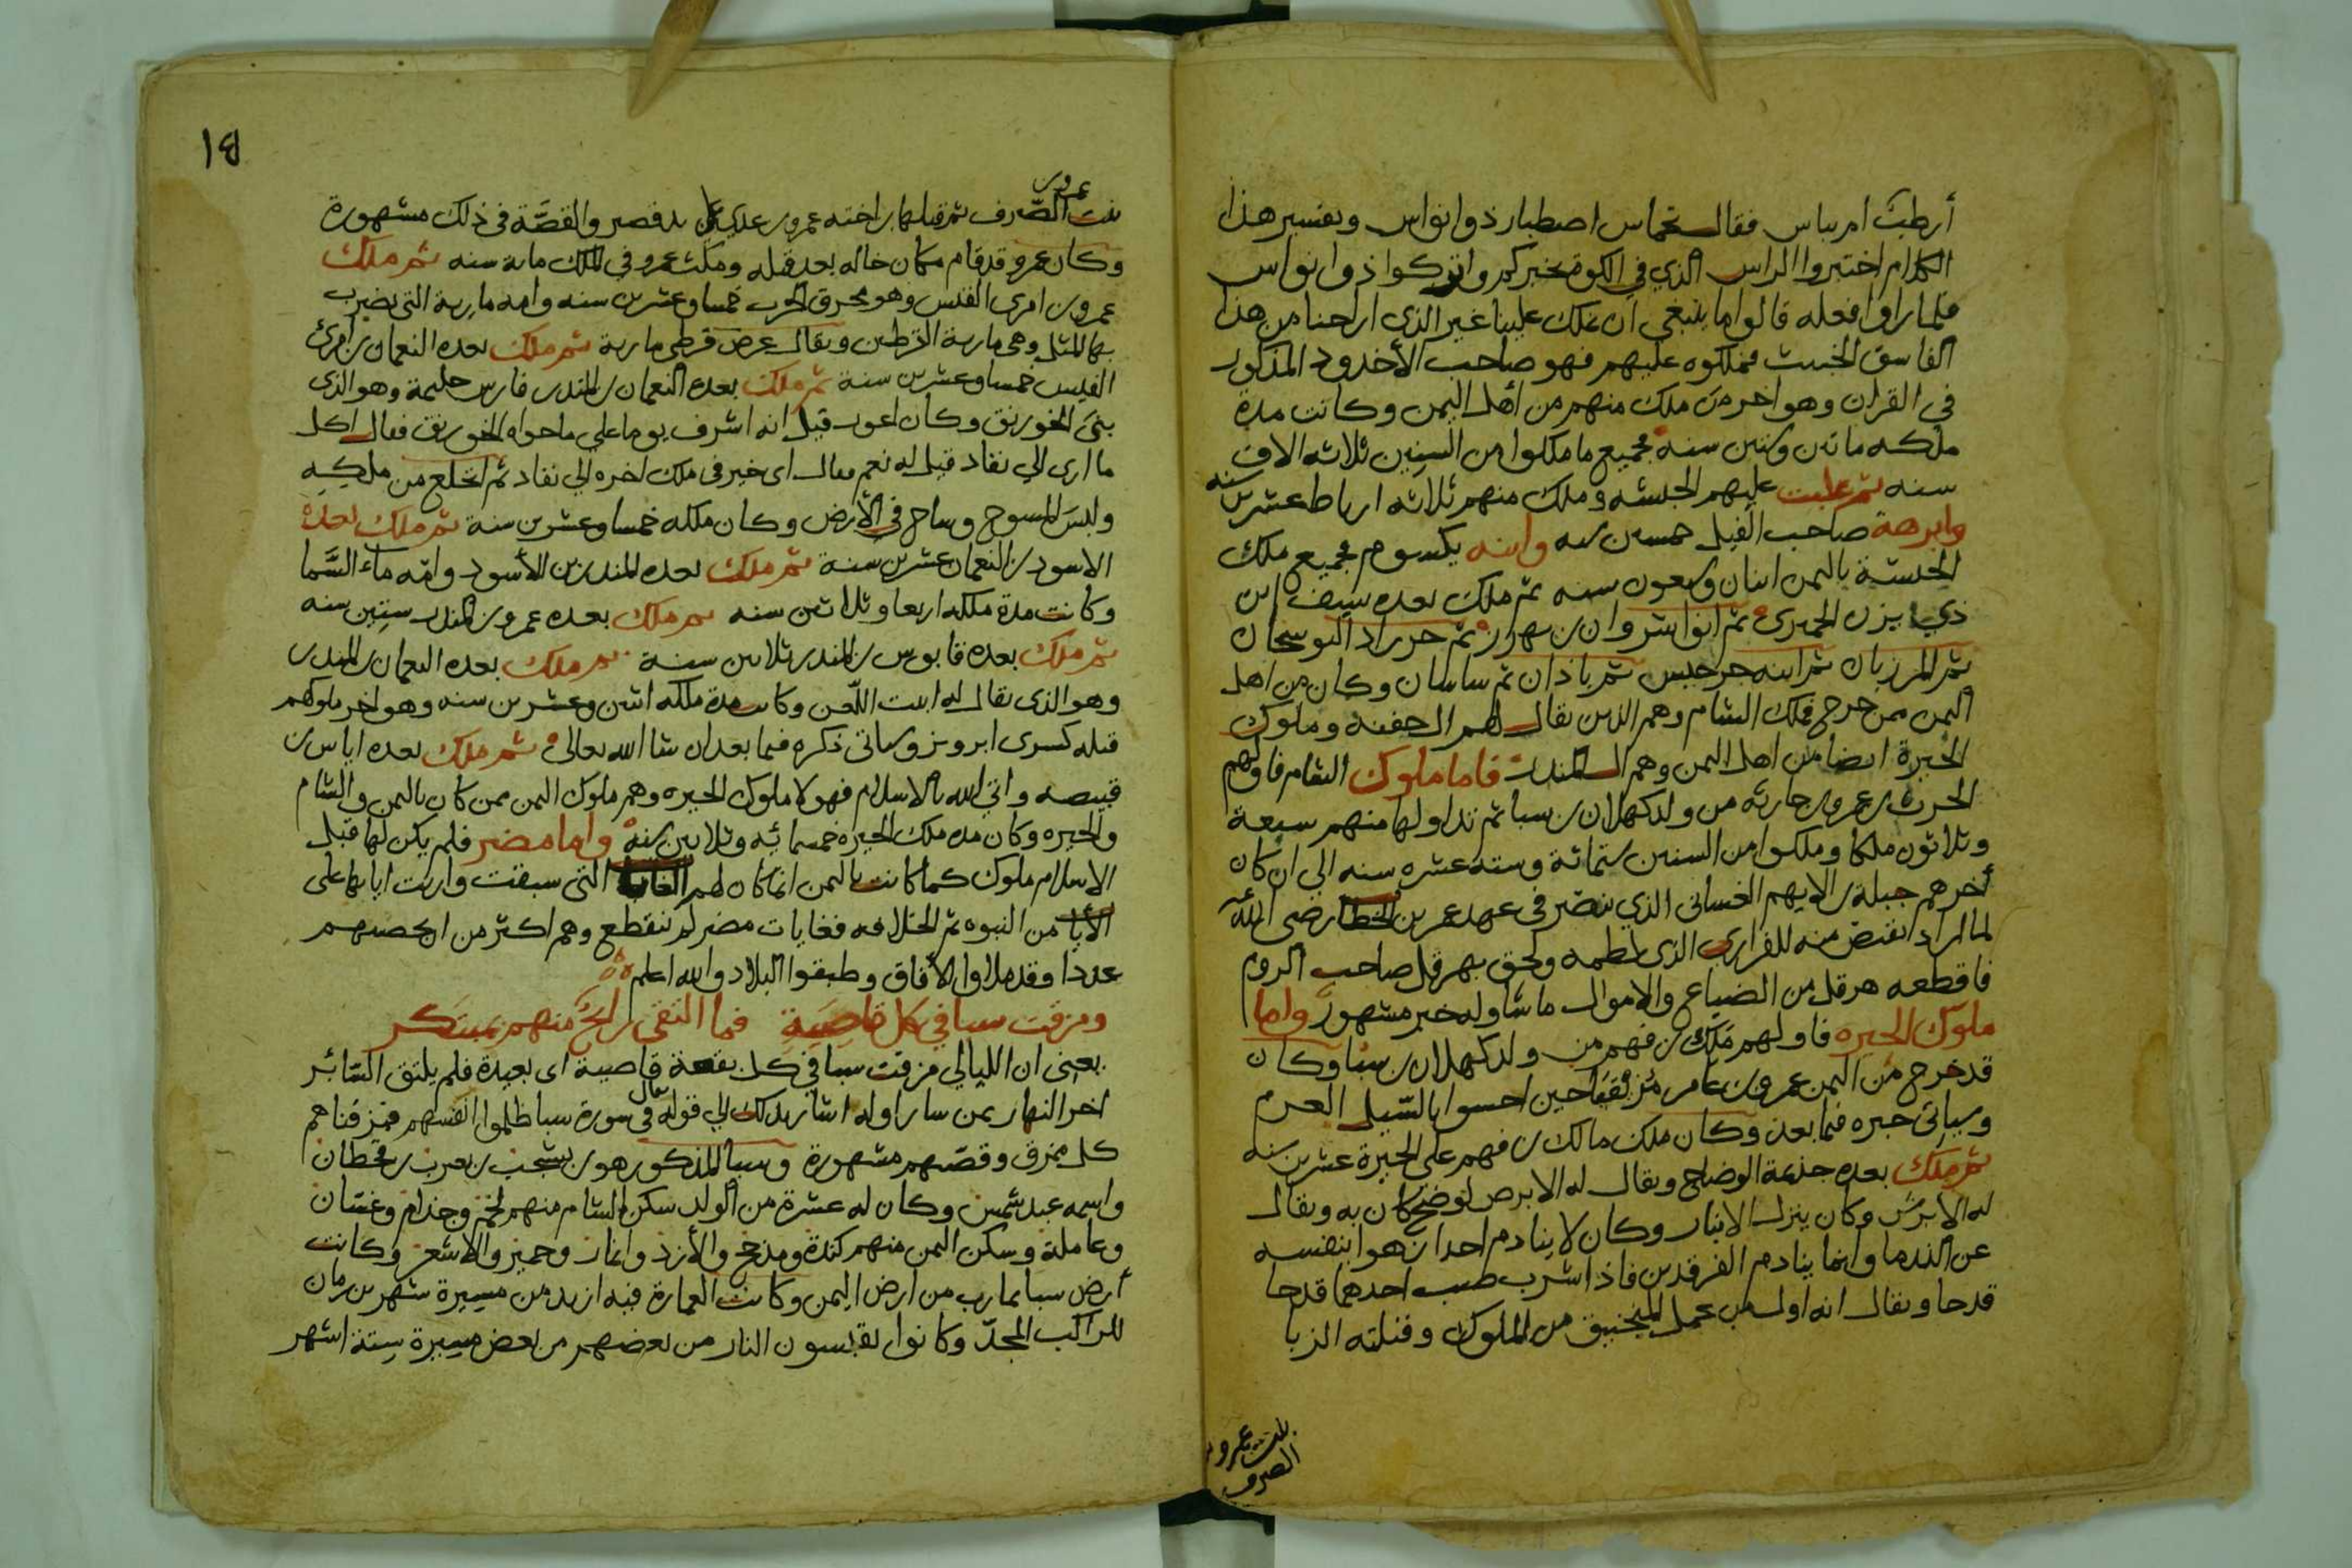 أرطبت ام يباس فقال نخماس اصطبار ذوا نواس وتفسير هذا
الكلام اختبروا الراس الذي في الكوة نخبركم واتركوا ذوا نواس
فلما راوا فعله قالوا ما ينبغي ان يملك علينا غير الذي اراحنا من هذا
الفاسق الخبيث فملكوه عليهم فهو صاحب الأخدود المذكور
في القران وهو اخر من ملك منهم من أهل اليمن وكانت مدة
ملكه مائتين وستين سنة فجميع ما ملكوا من السنين ثلاثه الاف
سنه ثم غلبت عليهم الحبشه وملك منهم ثلاثه ارياط عشرين سنه
وابرهة صاحب الفيل خمسين سنه وابنه يكسوم فجميع ملك
الحبشة باليمن اثنان وسبعون سنه ثم ملك بعده سيف ابن
ذي يزن الحميري ثم انوا شروان بن ثم
ثم المرزبان ثم ابنه جرجيس ثم باذان ثم ساسان وكان من اهل
اليمن من خرج فملك الشام وهم الذين يقال لهم ال جفنة وملوك
الحيرة ايضا من اهل اليمن وهم ال المنذر فاما ملوك الشام فاولهم
الحرث بن عمرو بن حارثه من ولد كهلان بن سبا ثم تداولها منهم سبعة
وثلاثون ملكا وملكوا من السنين ستمائة وسته عشره سنه الي ان كان
أخرهم جبلة بن الايهم الغساني الذي تنصر في عهد عمر بن الخطاب رضي الله عنه
لما اراد ان يقتص منه للفزاري الذي لطمه ولحق بهرقل صاحب الروم
فاقطعه هرقل من الضياع والاموال ما شا وله خبر مشهور واما
ملوك الحيره فاولهم مالك بن فهم من ولد كهلان بن سبا وكان
قد خرج من اليمن عمرو بن عامر مزيقيا حين احسوا بالسيل العرم
وسياتي خبره فيما بعد وكان ملك مالك بن فهم على الحيرة عشرين سنه
ثم ملك بعده جذيمة الوضاح ويقال له الابرص لوضح كان به ويقال
له الابرش وكان ينزل الانبار وكان لا ينادم احدا زهوا بنفسه
عن الندما وانما ينادم الفرقدين فاذا شرب صب احدهما قدحا
قدحا ويقال انه اول من عمل المنجنيق من الملوك وقتلته الزبا
بنت عمرو بن
الصرف
١٤
عمرو بن
بنت الصرف ثم قتلها بن اخته عمرو بن عدي علي يد قصير والقصة في ذلك مشهورة
وكان عمرو قد قام مكان خاله بعد قتله ومكث عمرو في الملك مائة سنه ثم ملك
عمرو بن امرئ القيس وهو محرق الحرب خمسا وعشرين سنه وامه مارية التي يضرب
بها المثل وهي مارية القرطين ويقال عرض قرطي مارية ثم ملك بعده النعمان بن امرئ
القيس خمسا وعشرين سنة ثم ملك بعده النعمان بن المنذر فارس حليمة وهو الذي
بنى الخورنق وكان اعور قيل انه اشرف يوما على ما حواه الخورنق فقال اكل
ما ارى الي نفاد قيل له نعم فقال اي خير في ملك اخره الي نفاد ثم انخلع من ملكه
ولبس المسوح وساح في الأرض وكان ملكه خمسا وعشرين سنة ثم ملك بعده
الاسود بن النعمان عشرين سنة ثم ملك بعده المنذر بن الأسود وامه ماء السما
وكانت مدة ملكه اربعا وثلاثين سنه ثم ملك بعده عمرو بن المنذر ستين سنه
ثم ملك بعده قابوس بن المنذر ثلاثين سنة ثم ملك بعده النعمان بن المنذر
وهو الذي يقال له ابيت اللعن وكانت مدة ملكه اثنين وعشرين سنه وهو اخر ملوكهم
قتله كسرى ابرويز وسياتي ذكره فيما بعد ان شا الله تعالى ثم ملك بعده اياس بن
قبيصه واتي الله بالاسلام فهولا ملوك الحيره وهم ملوك اليمن ممن كان باليمن والشام
والحيره وكان مده ملك الحيره خمسمائه وثلاثين سنه واما مضر فلم يكن لها قبل
الاسلام ملوك كما كانت باليمن انما كان لهم الغايه التي سبقت واربت اياتها على
الأيا من النبوه ثم الخلافه فغايات مضر لم تنقطع وهم اكثر من ان يحصيهم
عددا وقد ملاوا الأفاق وطبقوا البلاد والله اعلم
ومزقت سبا في كل قاصية فما التقى رائح منهم بمبتكر
يعني ان الليالي مزقت سبا في كل بقعة قاصية اي بعيدة فلم يلتق السائر
اخر النهار بمن سار اوله اشار بذلك الي قوله تعالى في سورة سبا ظلموا انفسهم فمزقناهم
كل ممزق وقصتهم مشهورة وسبا المذكور هو بن يشجب بن يعرب بن قحطان
واسمه عبد شمس وكان له عشرة من الولد سكن الشام منهم لخم وجذام وغسان
وعاملة وسكن اليمن منهم كندة ومذحج والأزد وانمار وحمير والاشعر وكانت
أرض سبا بمارب من ارض اليمن وكانت العمارة فيه ازيد من مسيرة شهرين زمان
للراكب المجد وكانوا يقتبسون النار من بعضهم من بعض مسيرة ستة اشهر